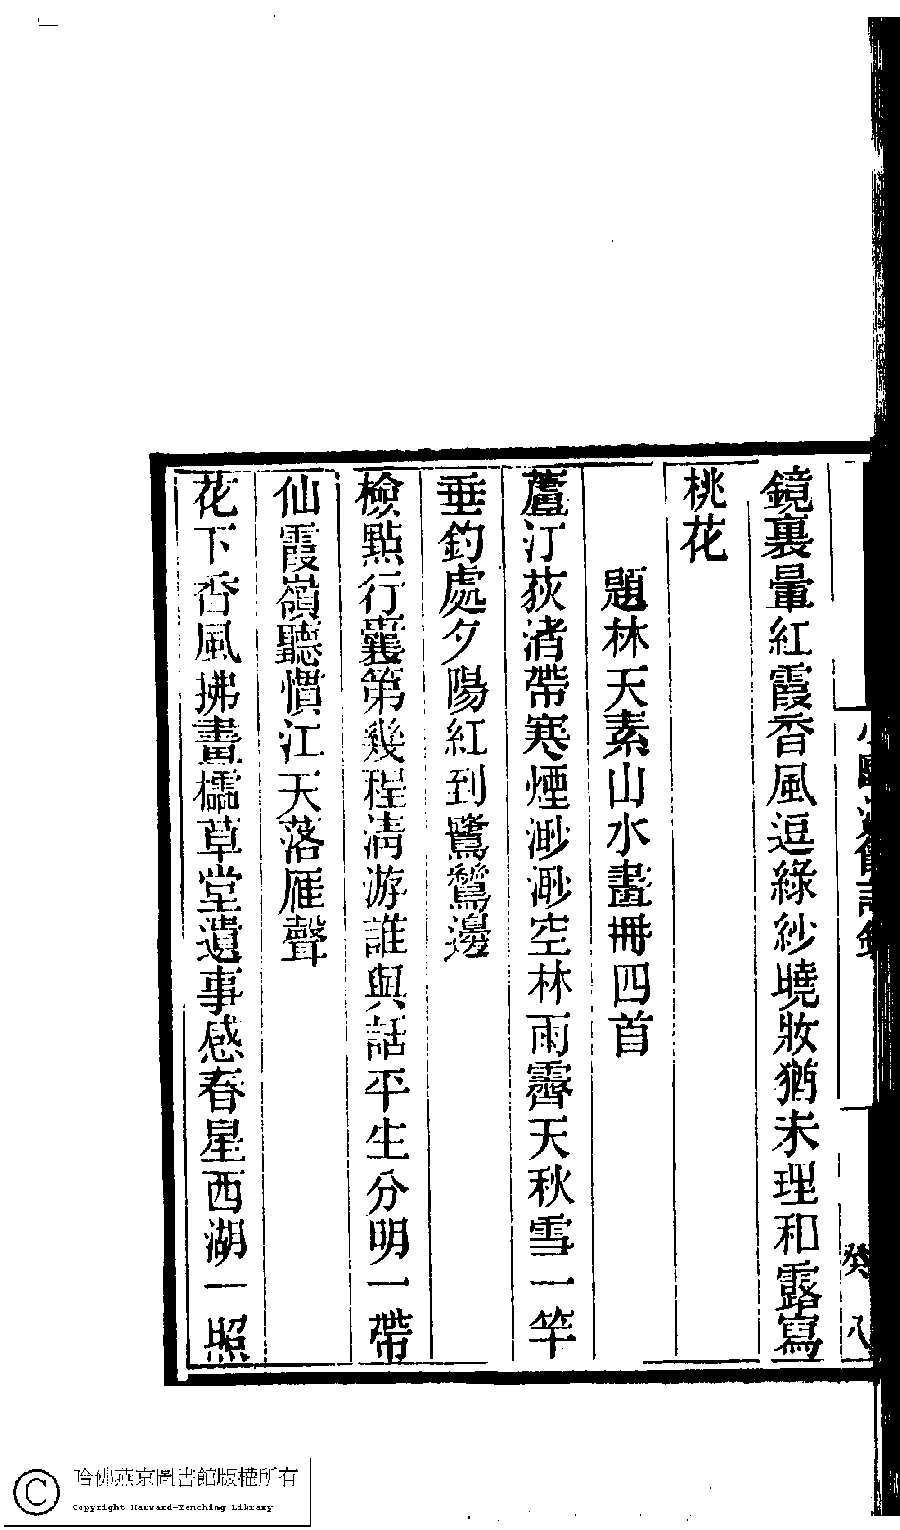 鏡裏暈紅霞香風逗綠紗曉妝猶未理和露寫
桃花
題林天素山水畫冊四首
蘆汀荻渚帶寒煙渺渺空林雨霽天秋雪一竿
垂釣處夕陽紅到鷺鶿邊
檢點行囊第幾程淸游誰與話平生分明一帶
仙霞嶺聽慣江天落雁聲
花下香風拂畫櫺草堂遺事感春星西湖一照
癸 八
哈佛燕京圖書館版權所有
Copyright Harvard-Yenching Library